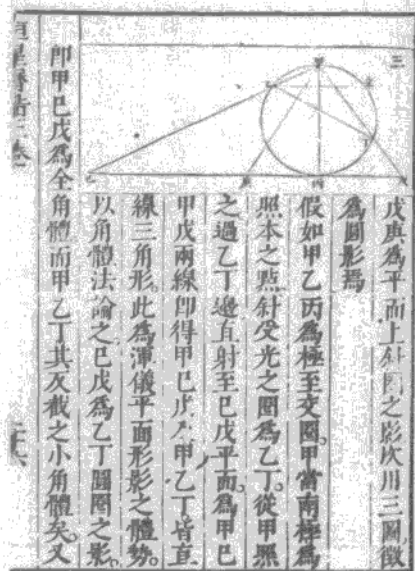 三
戊庚為平面上斜圈之影次用三圖徵
為圓影焉
假如甲乙丙為極至交圈。甲當南極為
照本之點。斜受光之圈為乙丁。從甲照
之過乙丁邊直射至巳戊平面。為甲巳
甲戊兩線即得甲巳戊又甲乙丁皆直
線三角形。此為渾儀平面形影之體勢。
以角體法論之巳戊為乙丁圓圈之影。
即甲巳戊為全角體而甲乙丁其反截之小角體矣。又